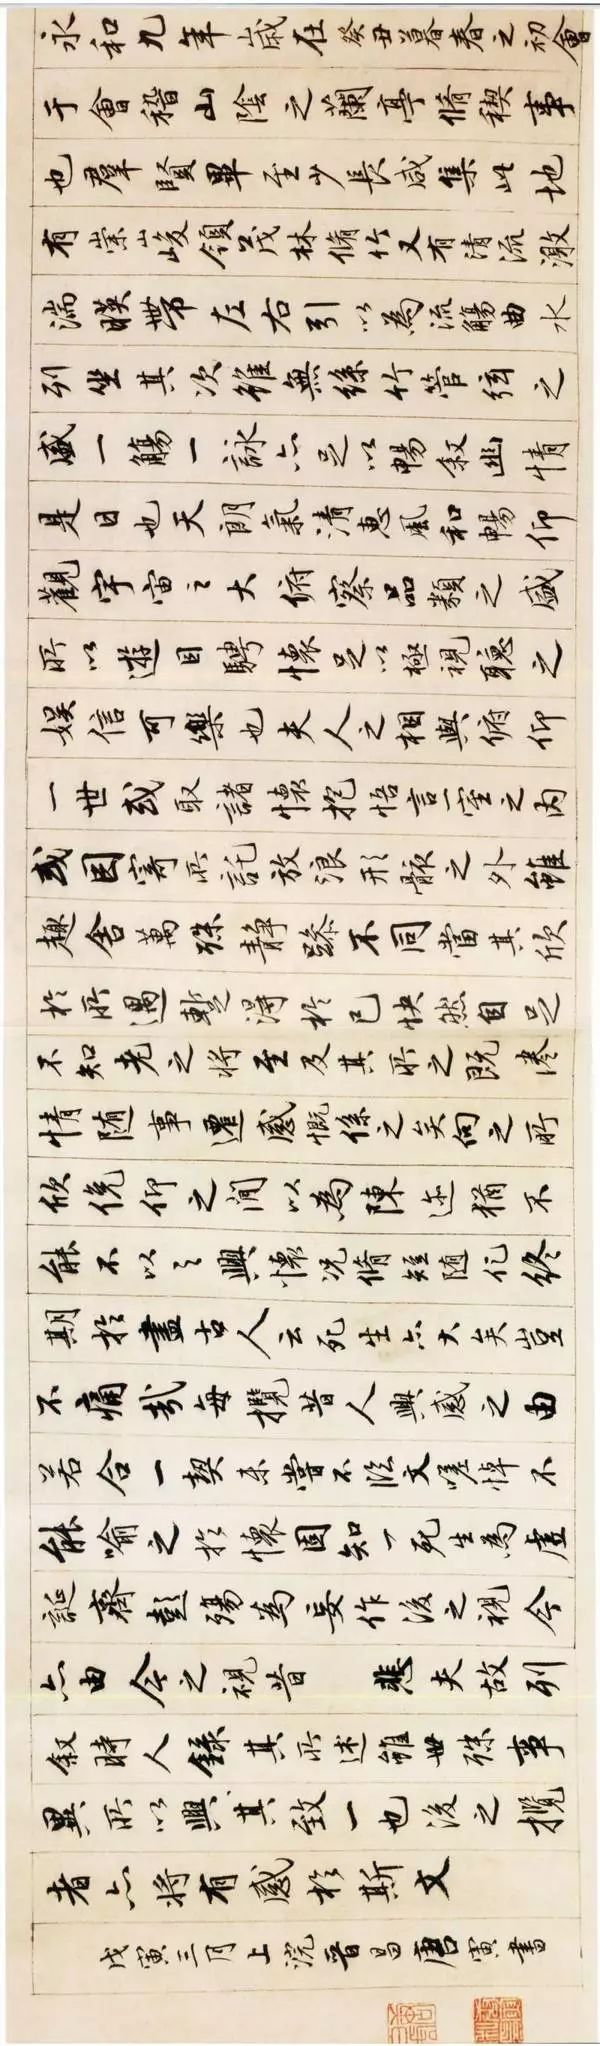 永和九年歲在癸丑暮春之初會
于會稽山陰之蘭亭脩稧事
也群賢畢至少長咸集此地
有崇山峻領茂林脩竹又有清流激
湍暎帶左右引以為流觴曲水
列坐其次雖無絲竹管弦之
盛一觴一詠亦足以暢叙幽情
是日也天朗氣清惠風和暢仰
觀宇宙之大俯察品類之盛
所以遊目騁懷足以極視聽之
娱信可樂也夫人之相與俯仰
一世或取諸懷抱悟言一室之内
或因寄所託放浪形骸之外雖
趣舍萬殊静躁不同當其欣
於所遇暫得於己快然自足
不知老之將至及其所之既惓
情随事遷感慨係之矣向之所
欣俛仰之間以為陳迹猶不
能不以之興懷況脩短随化終
期於盡古人云死生亦大矣豈
不痛哉每攬昔人興感之由
若合一契未嘗不臨文嗟悼不
能喻之於懷固知一死生為虚
誕齊彭殤為妄作後之視今
亦由今之視昔 悲夫故列
叙時人錄其所述雖世殊事
異所以興其致一也後之攬
者亦將有感於斯文
戊寅三月上浣晋昌唐寅書